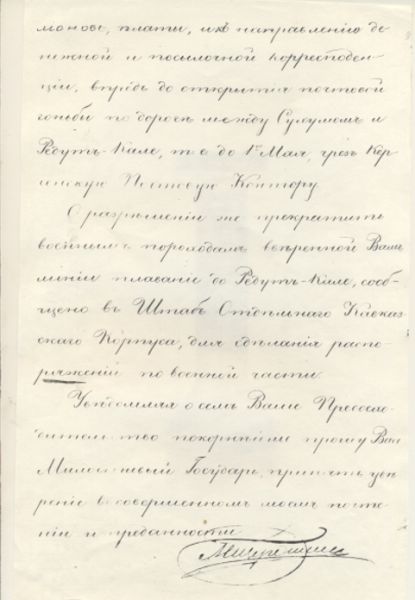 моновъ, платы, и къ направленію де
нежной и посылочной корреспонден
ціи, впредь до открытія почтовой
гоньбы по дорогѣ между Сухумомъ и
Редутъ-Кале, т. е. до 1го Мая, чрезъ Кер
ченскую Почтовую Контору.
О разрѣшеніи же прекратить
военнымъ пароходамъ ввѣренной Вамъ
линіи плаваніе до Редутъ-Кале, сооб-
щено въ Штабъ Отдѣльнаго Кавказ
скаго Корпуса, для сдѣланія распо
ряженій по военной части.
Увѣдомляя о семъ Ваше Превосхо
дительство покорнѣйше прошу Васъ
Милостивый Государь, принять увѣ
реніе въ совершенномъ моемъ почте
ніи и преданности